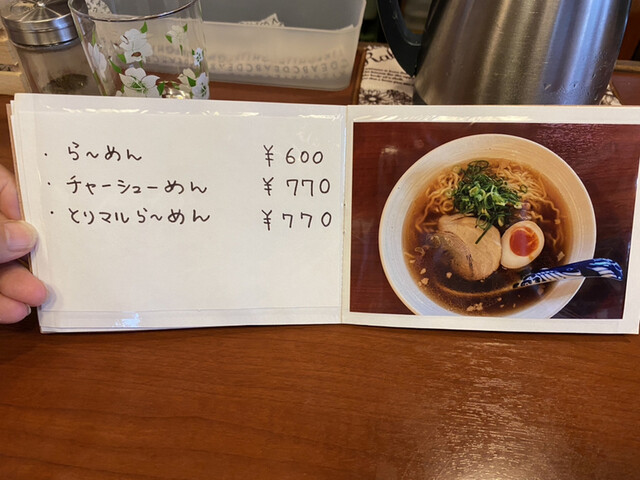 ・らーめん ￥600
・チャーシューめん ￥770
・とりマルらーめん ￥770